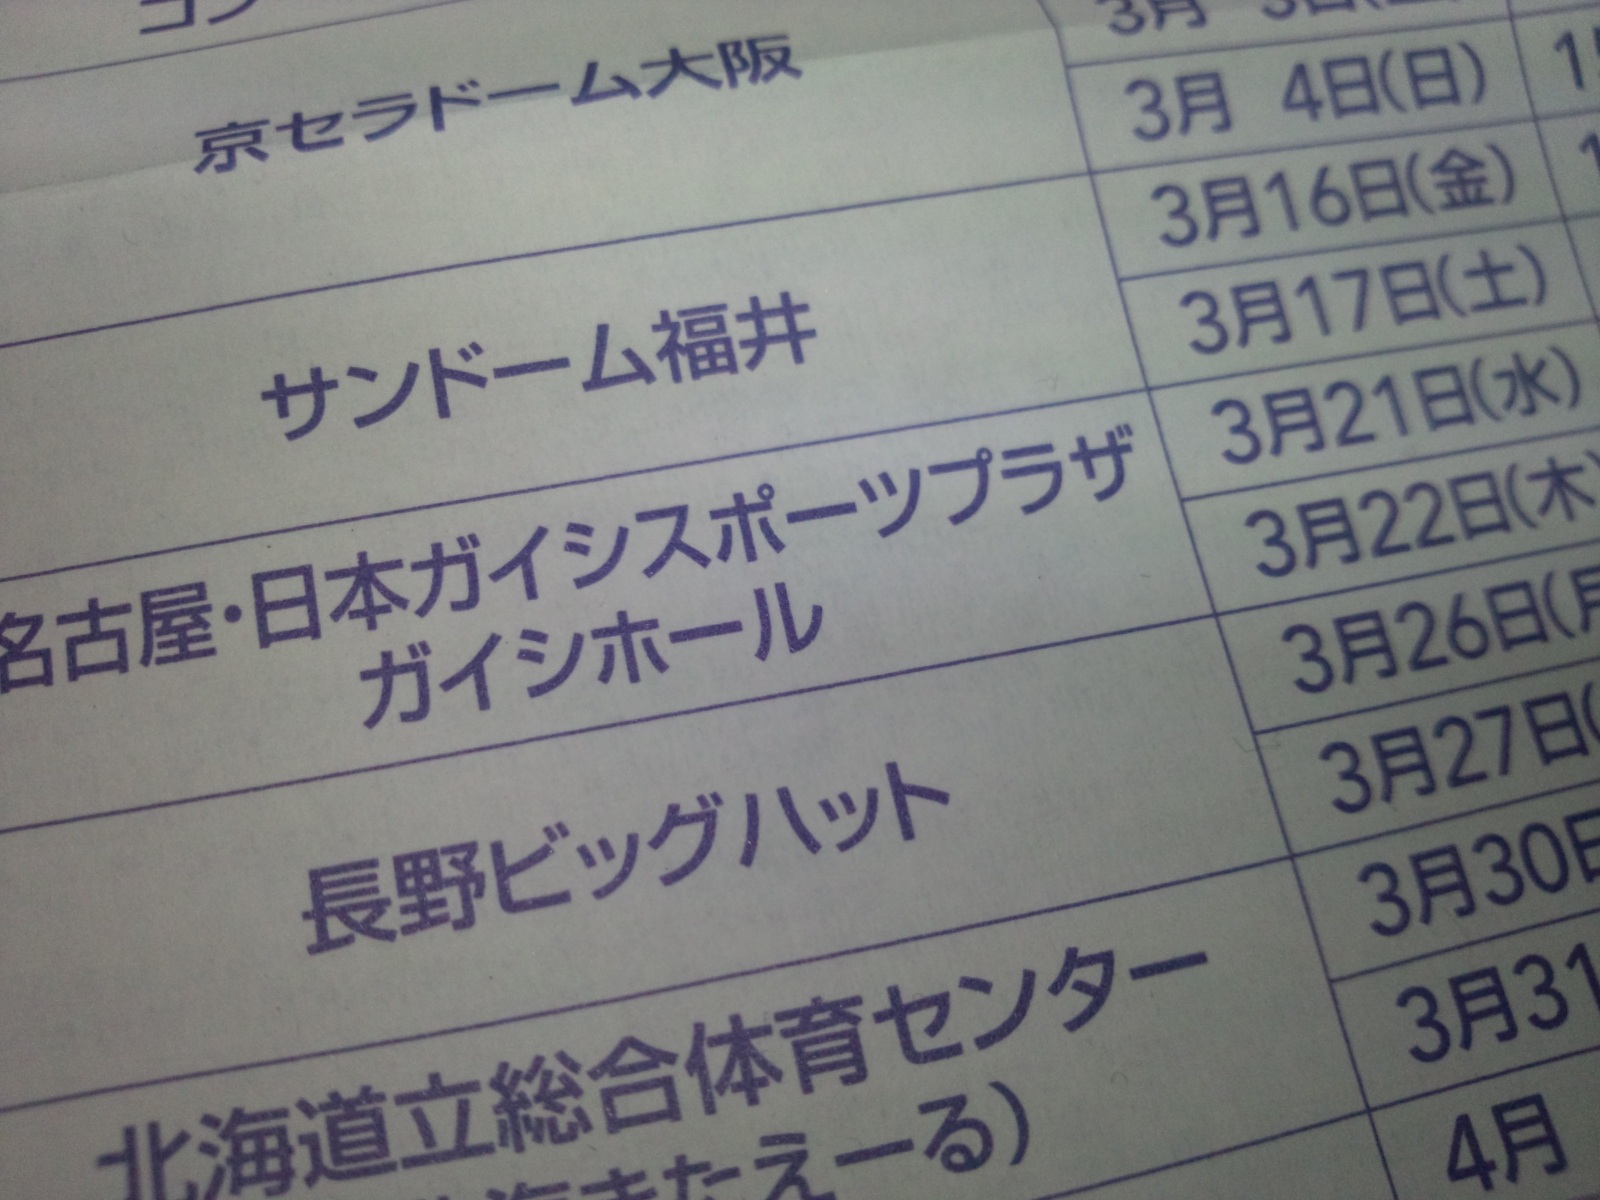 コン
京セラドーム大阪
3月 3日(土)
3月 4日(日)
サンドーム福井
3月16日(金)
3月17日(土)
名古屋・日本ガイシスポーツプラザ
ガイシホール
3月21日(水)
3月22日(木)
長野ビッグハット
3月26日(月
3月27日(
北海道立総合体育センター
海きたえーる)
3月30日
3月31
4月